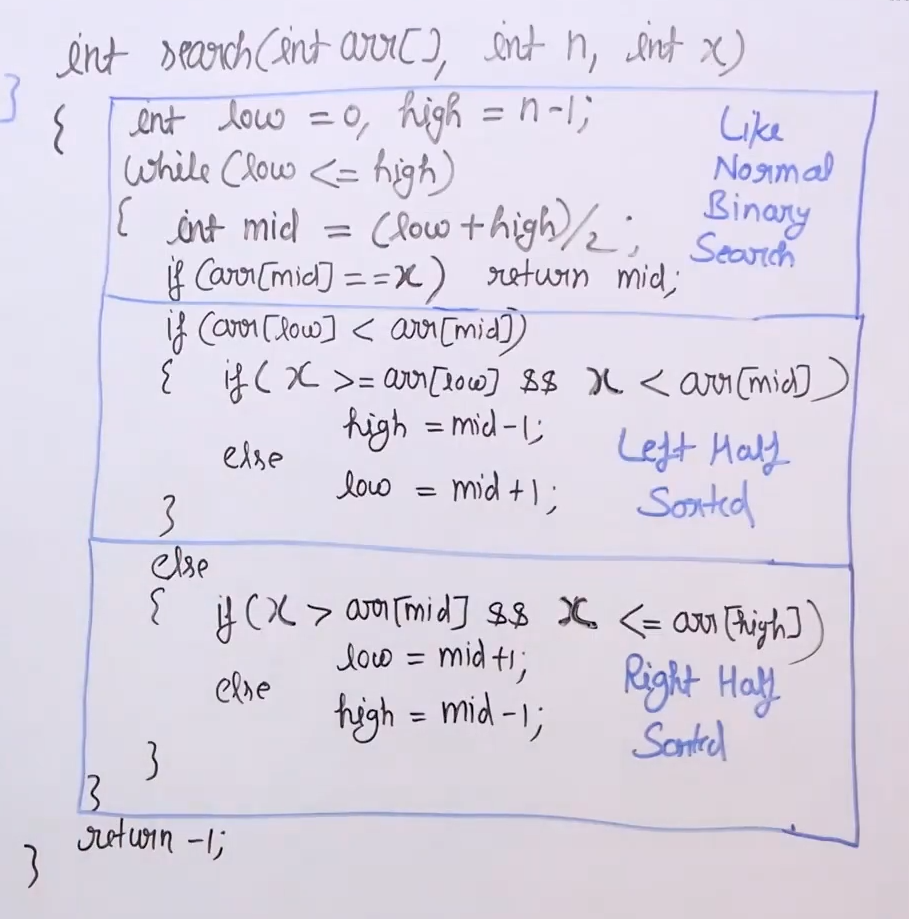 int search(int arr[], int n, int x)
}
{ int low = 0, high = n-1;
Like
Normal
Binary
Search
while (low <= high)
{ int mid = (low + high)/2;
if (arr[mid] == x) return mid;
if (arr[low] < arr[mid])
{ if (x >= arr[low] && x < arr[mid])
high = mid-1;
else
low = mid+1;
Left Half
Sorted
}
else
{ if (x > arr[mid] && x <= arr[high])
low = mid+1;
else
high = mid-1;
Right Half
Sorted
}
}
return -1;
}